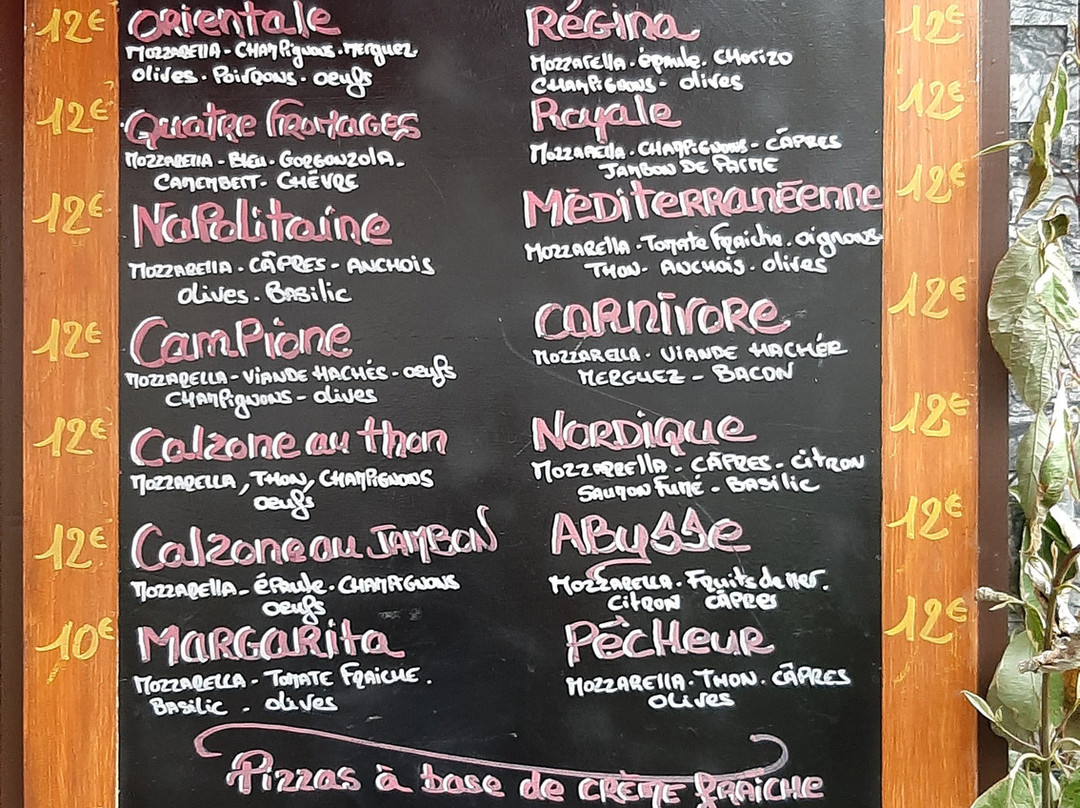 12€ Orientale
Mozzarella - Champignons - Merguez
olives - Poivrons - oeufs
12€ Quatre Fromages
Mozzarella - Bleu - Gorgonzola -
Camembert - Chèvre
12€ Napolitaine
Mozzarella - Câpres - Anchois
olives - Basilic
12€ Campione
Mozzarella - Viande Hachés - oeufs
Champignons - olives
12€ Calzone au thon
Mozzarella, Thon, Champignons
oeufs
12€ Calzone au Jambon
Mozzarella - épaule - Champignons
oeufs
10€ Margarita
Mozzarella - Tomate Fraiche -
Basilic - olives
Régina 12€
Mozzarella - épaule - Chorizo
Champignons - olives
Royale 12€
Mozzarella - Champignons - Câpres
Jambon de Parme
Méditerranéenne 12€
Mozzarella - Tomate Fraiche - oignons
Thon - Anchois - olives
Carnivore 12€
Mozzarella - Viande Hachée
Merguez - Bacon
Nordique 12€
Mozzarrella - Câpres - Citron
Saumon Fumé - Basilic
Abysse 12€
Mozzarella - Fruits de Mer -
Citron câpres
Pêcheur 12€
Mozzarella - Thon - Câpres
olives
Pizzas à base de crème fraiche